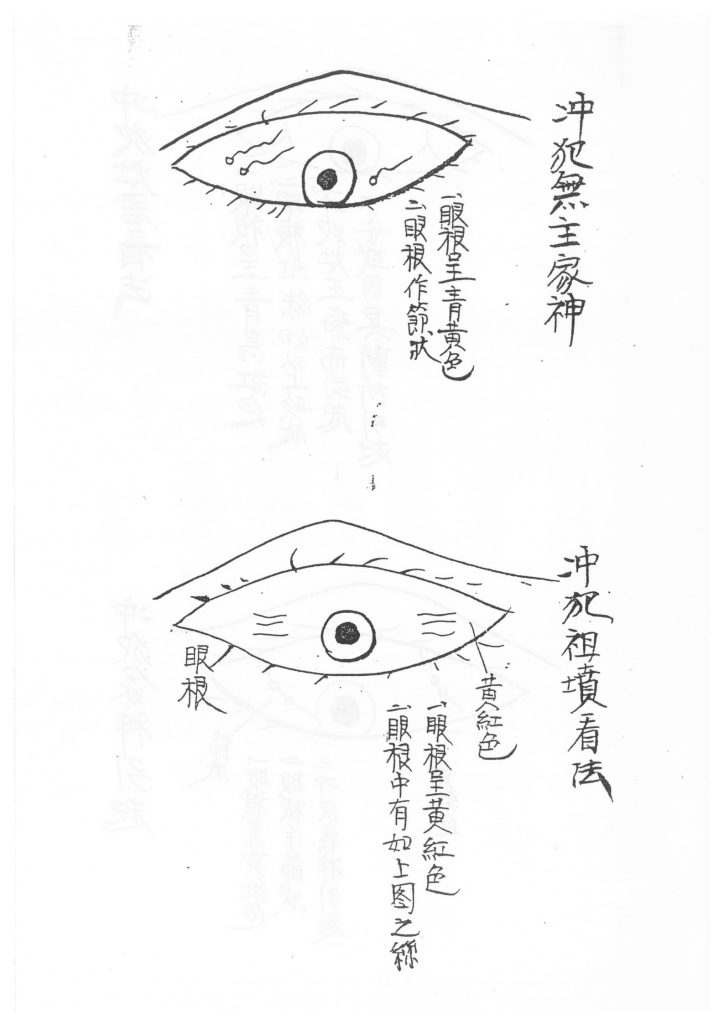 冲犯無主家神
一、眼根呈青黃色
二、眼根作節狀
冲犯祖墳看法
黃紅色
一、眼根呈黃紅色
二、眼根中有如上图之絲
眼根